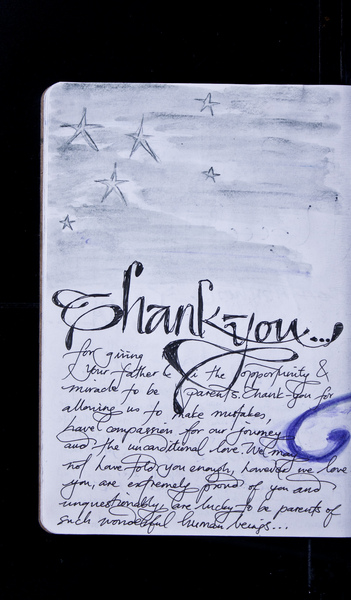 Thank you...
for giving
& your father & I the opportunity &
miracle to be parents. Thank-you for
allowing us to make mistakes,
have compassion for our journey
and the unconditional love. We may
not have told you enough, however we love
you, are extremely proud of you and
unquestionably are lucky to be parents of
such wonderful human beings...